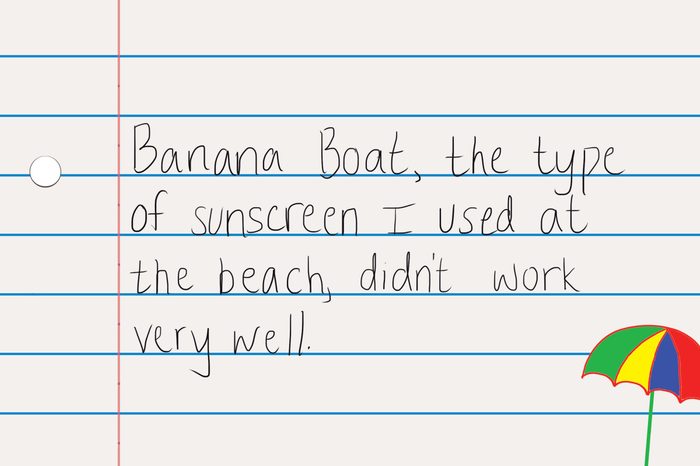 Banana Boat, the type
of sunscreen I used at
the beach, didn't work
very well.